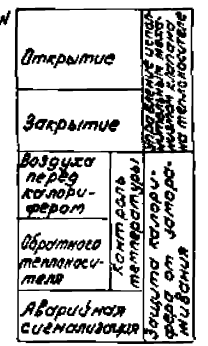 N
Открытие
Закрытие
Управление испол-
нительным меха-
низмом клапана
на теплоносителе
Воздуха
перед
калори-
фером
Обратного
теплоноси-
теля
Контроль
температуры
Аварийная
сигнализация
Защита калори-
фера от замора-
живания